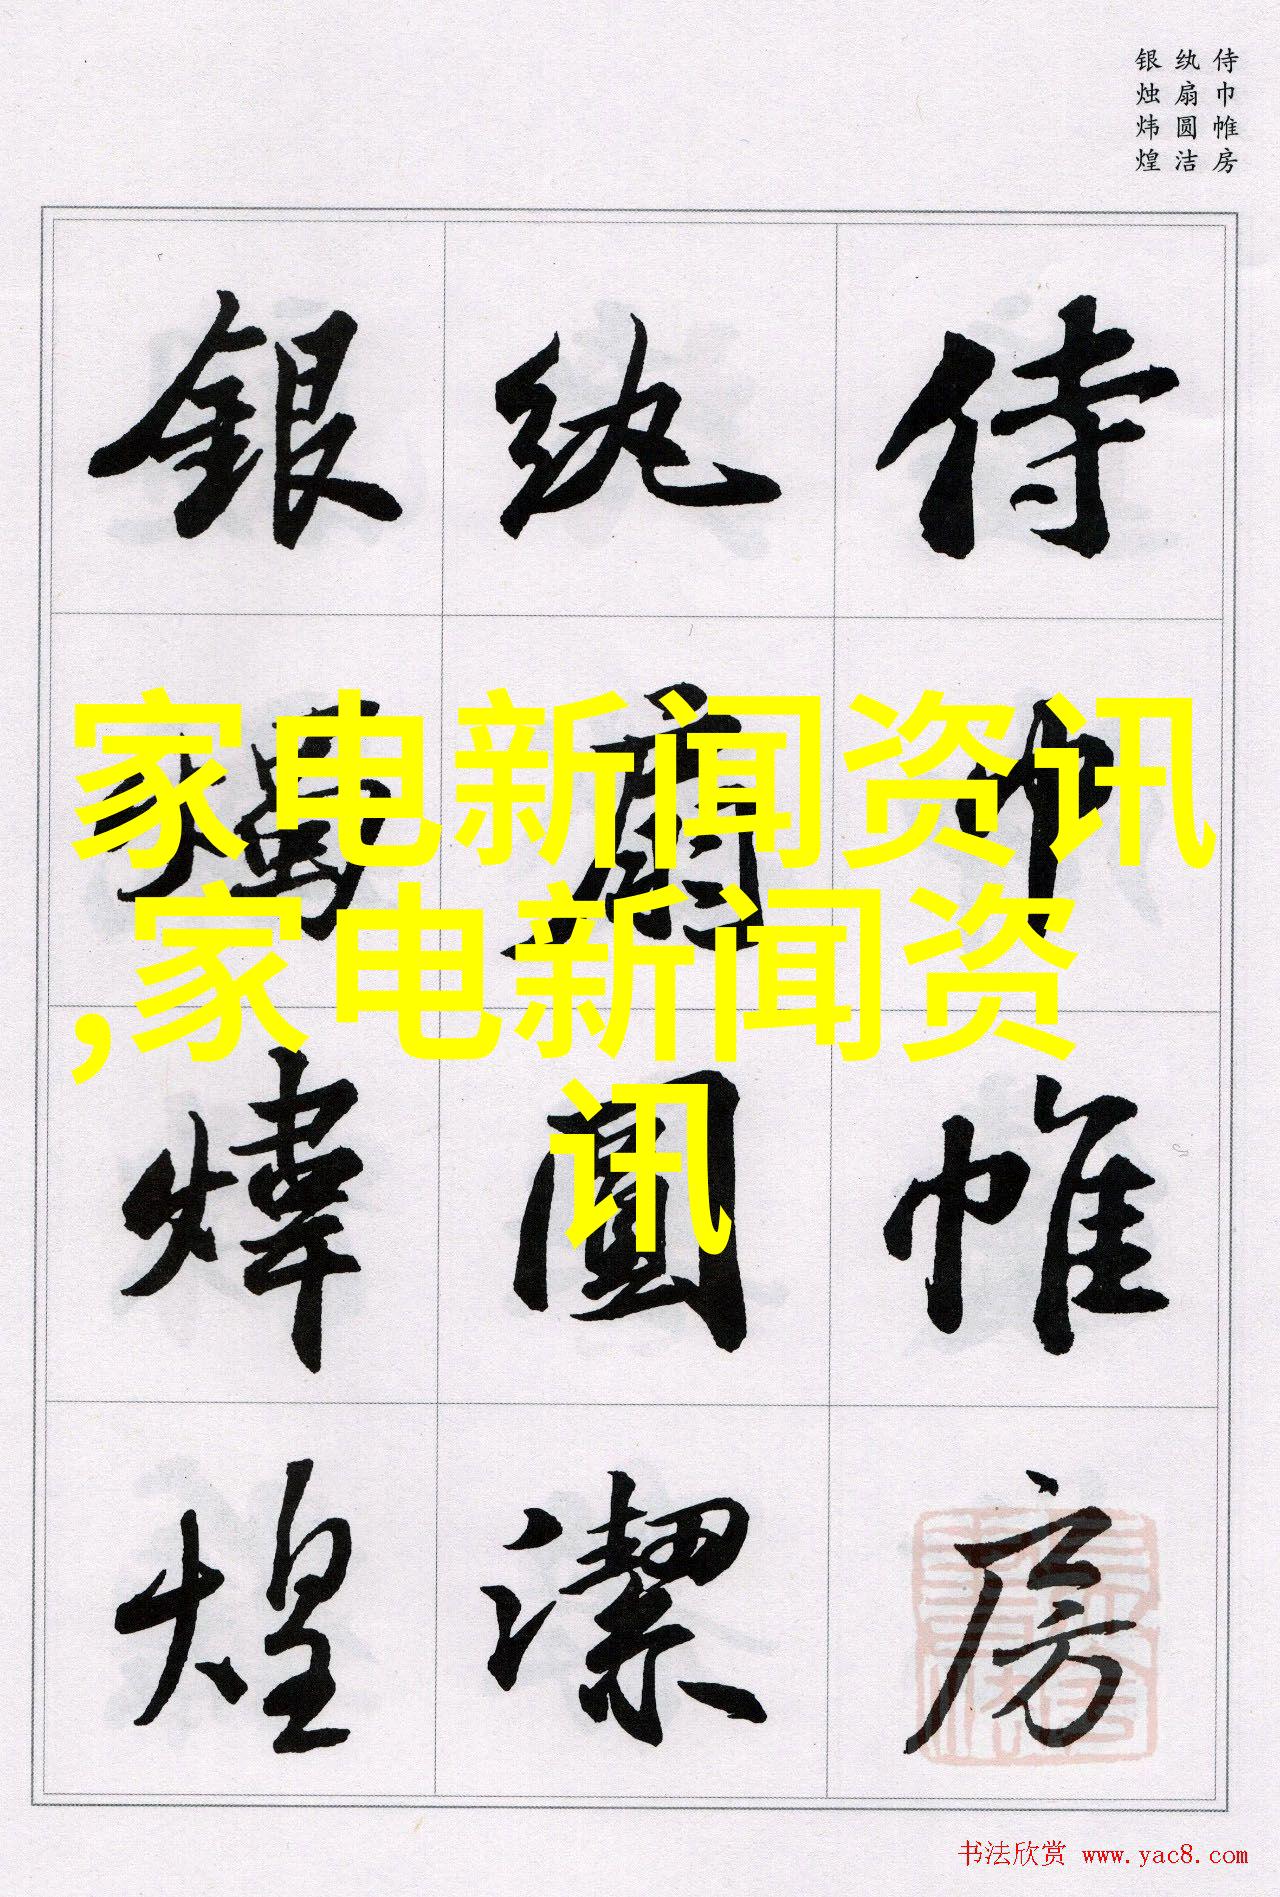 侍巾帷房
纨扇圆洁
银烛炜煌
侍巾帷房
紈扇圓潔
銀燭煒煌
家电新闻资讯
,家电新闻资
讯
书法欣赏 www.yac8.com